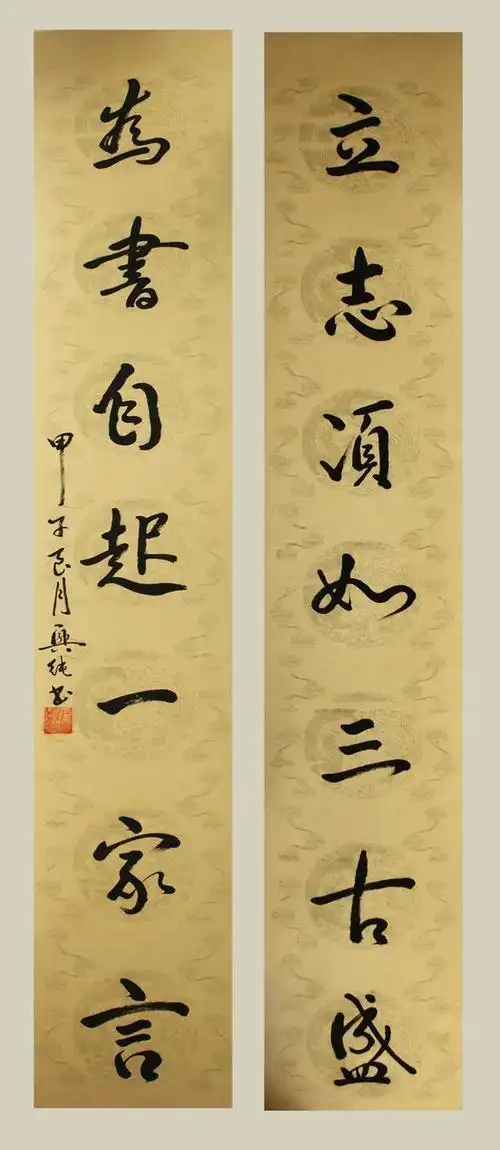 立志須如三古盛
為書自起一家言
甲子良月興純書